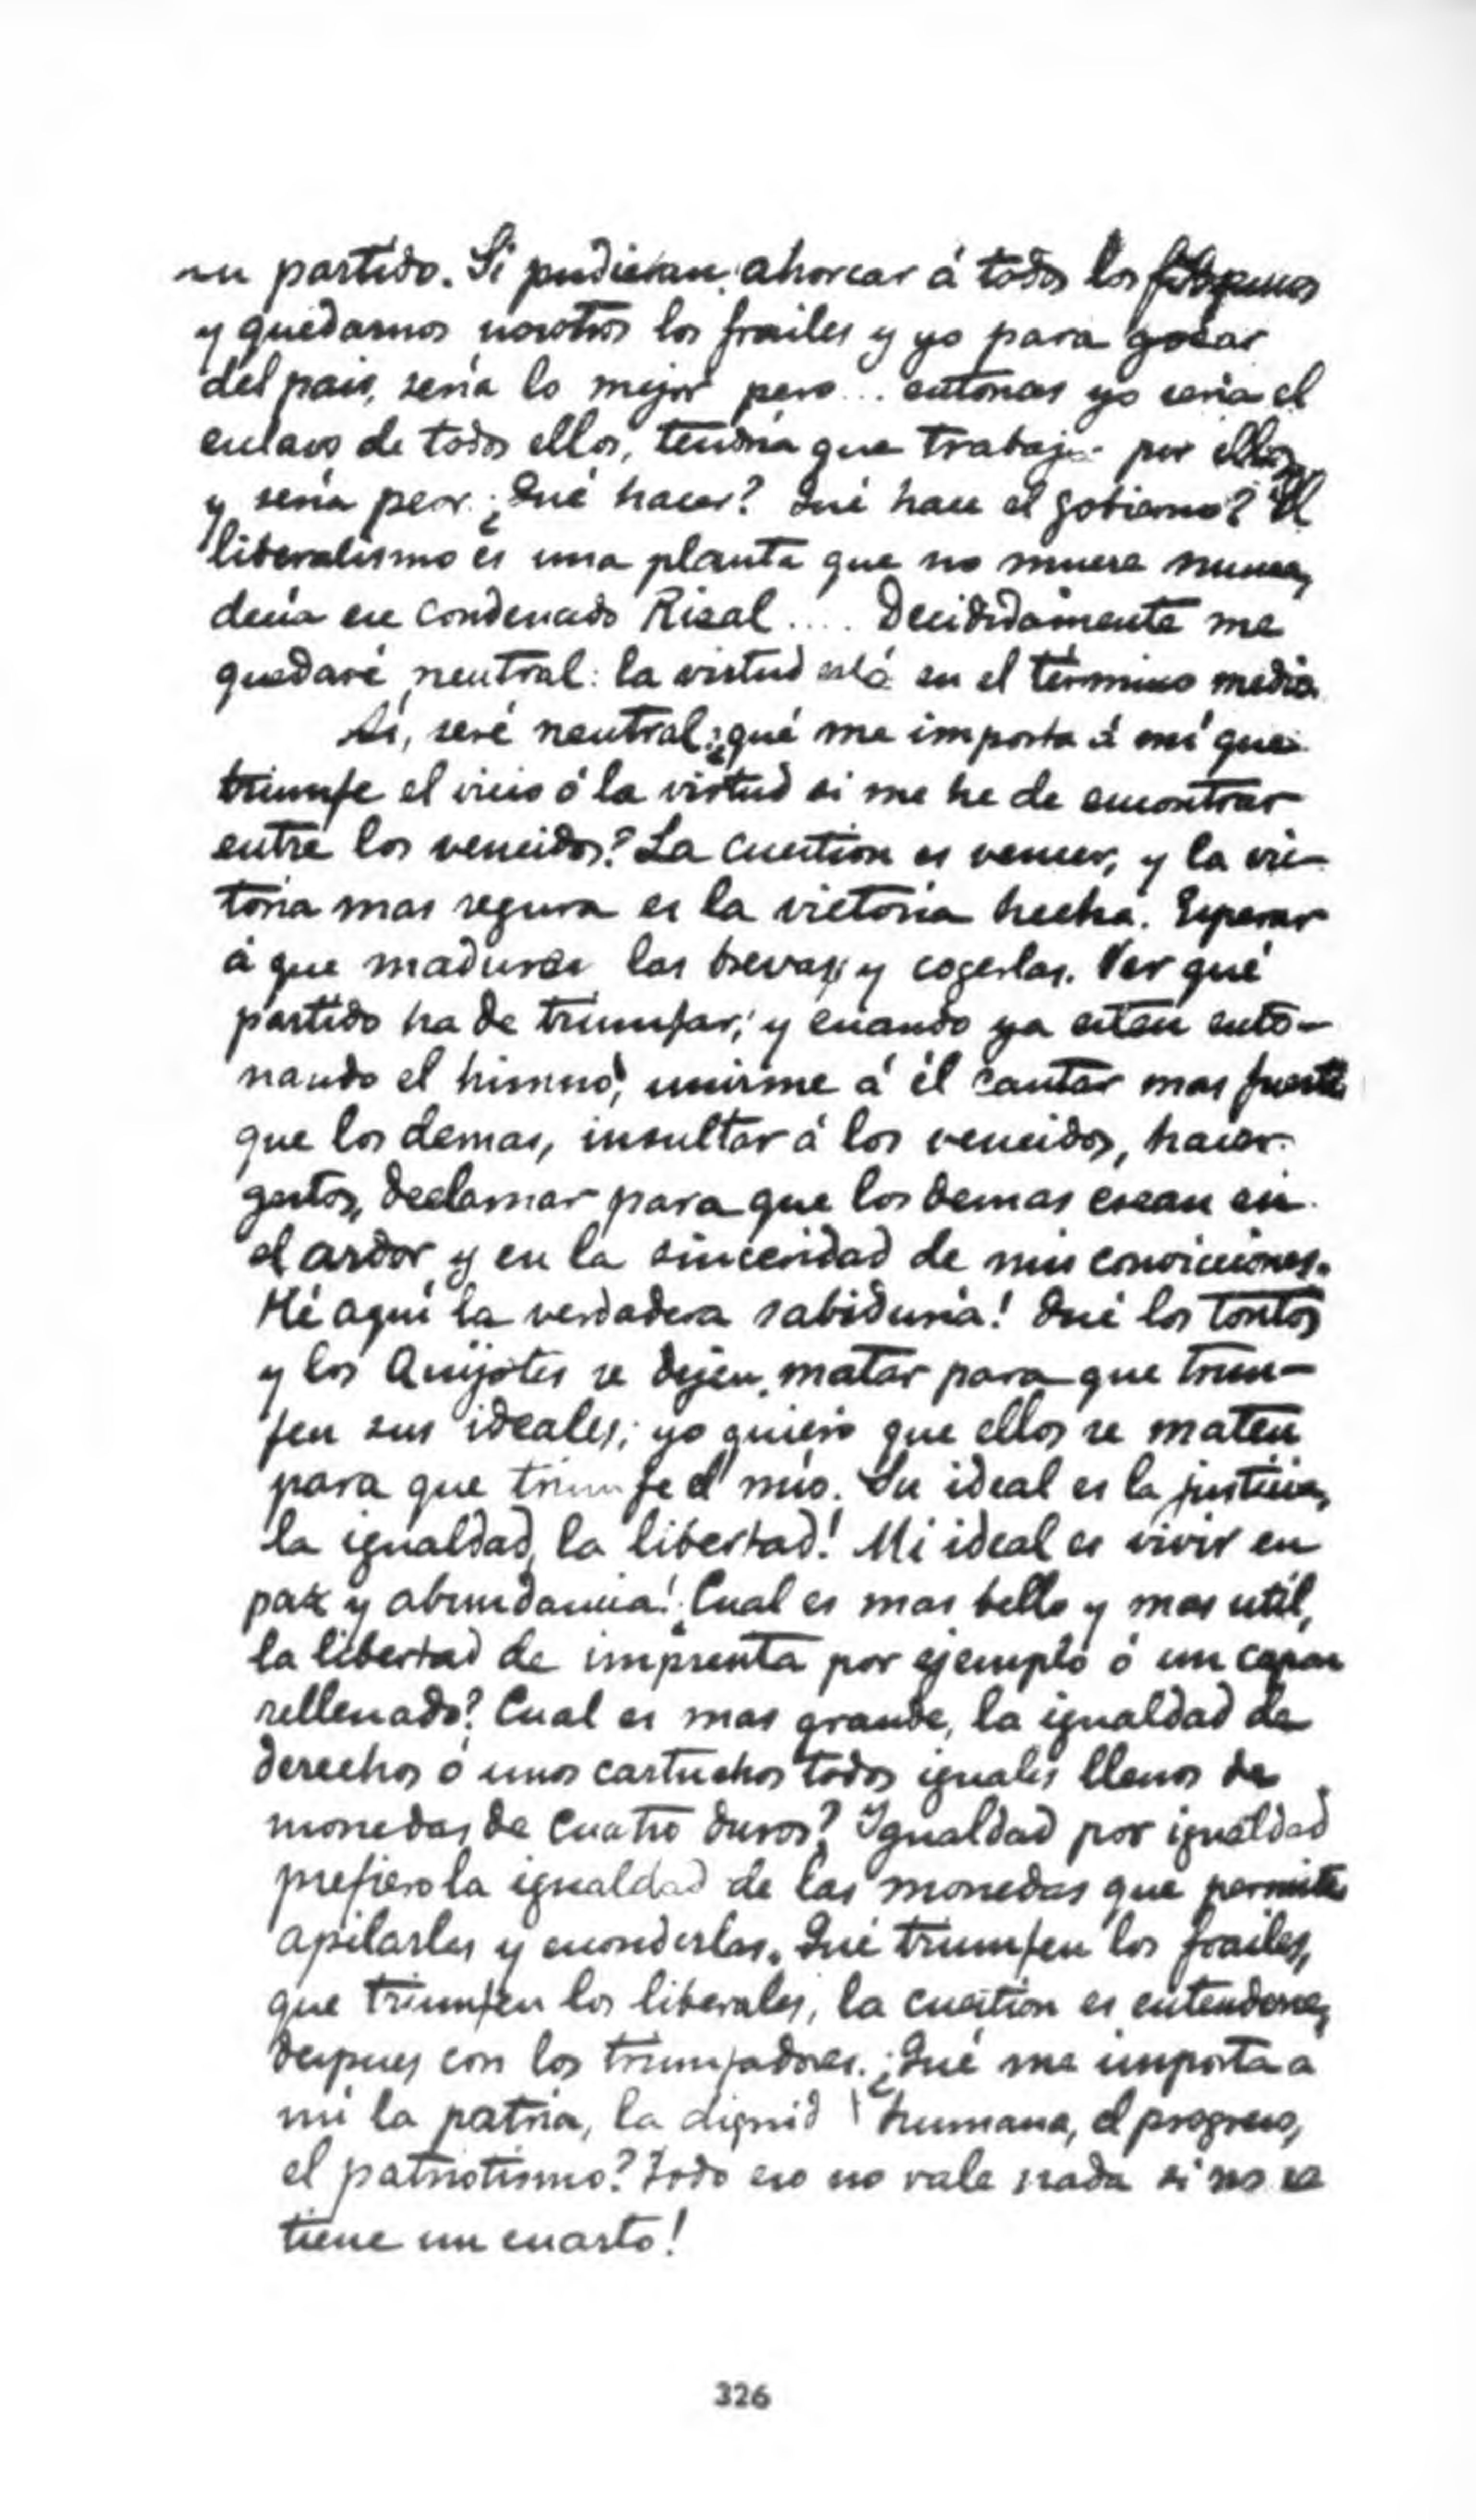 su partido. Si pudieran ahorcar á todos los filipinos
y quedarnos nosotros los frailes y yo para gozar
del pais, sería lo mejor pero... entonces yo sería el
esclavo de todos ellos, tendría que trabajar por ellos
y sería peor. ¿Qué hacer? Qué hace el gobierno? El
liberalismo es una planta que no muere nunca,
decía ese condenado Rizal.... Decididamente me
quedaré neutral: la virtud está en el término medio.
Sí, seré neutral; ¿qué me importa á mí que
triunfe el vicio ó la virtud si me he de encontrar
entre los vencidos? La cuestion es vencer, y la vic-
toria mas segura es la victoria hecha. Esperar
á que maduren las brevas y cogerlas. Ver qué
partido ha de triunfar, y cuando ya esten ento-
nando el himno, unirme á él cantar mas fuerte
que los demas, insultar á los vencidos, hacer
gestos, declamar para que los demas crean en
el ardor y en la sinceridad de mis convicciones.
Hé aquí la verdadera sabiduría! Qué los tontos
y los Quijotes se dejen matar para que triun-
fen sus ideales; yo quiero que ellos se maten
para que triunfe el mío. Su ideal es la justicia,
la igualdad, la libertad! Mi ideal es vivir en
paz y abundancia! ¿Cual es mas bello y mas util,
la libertad de imprenta por ejemplo ó un capon
rellenado? Cual es mas grande, la igualdad de
derechos ó unos cartuchos todos iguales llenos de
monedas de cuatro duros? Igualdad por igualdad
prefiero la igualdad de las monedas que permite
apilarlas y esconderlas. Qué triunfen los frailes,
que triunfen los liberales, la cuestion es entenderse
despues con los triunfadores. ¿Qué me importa a
mí la patria, la dignid humana, el progreso,
el patriotismo? Todo eso no vale nada si no se
tiene un cuarto!
326